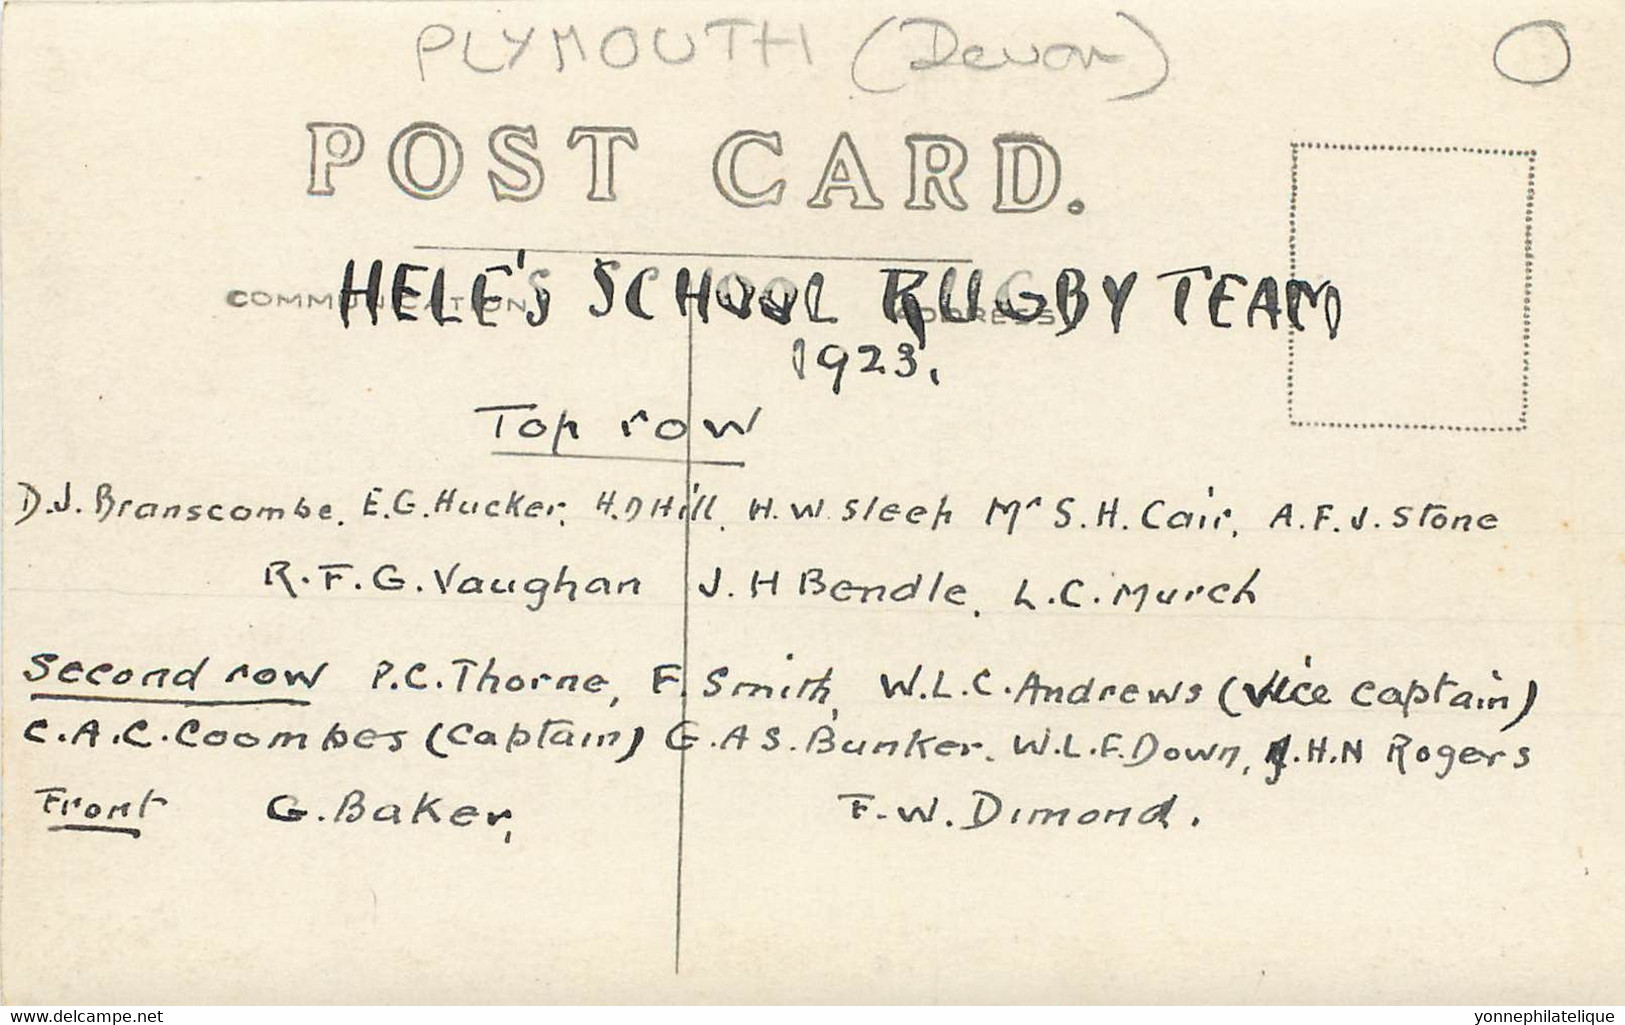 PLYMOUTH (Devon)
POST CARD.
COMMUNICATION ADDRESS
HELE'S SCHOOL RUGBY TEAM
1923.
Top row
D.J. Branscombe. E.G. Hucker. H.D Hill. H.W. Sleep Mr S.H. Cair. A.F.J. Stone
R.F.G. Vaughan J.H Bendle. L.C. Murch
Second row P.C. Thorne, F. Smith, W.L.C. Andrews (Vice Captain)
C.A.C. Coombes (Captain) G.A S. Bunker. W.L.F. Down, J.H.N Rogers
Front G. Baker, F.W. Dimond.
www.delcampe.net yonnephilatelique